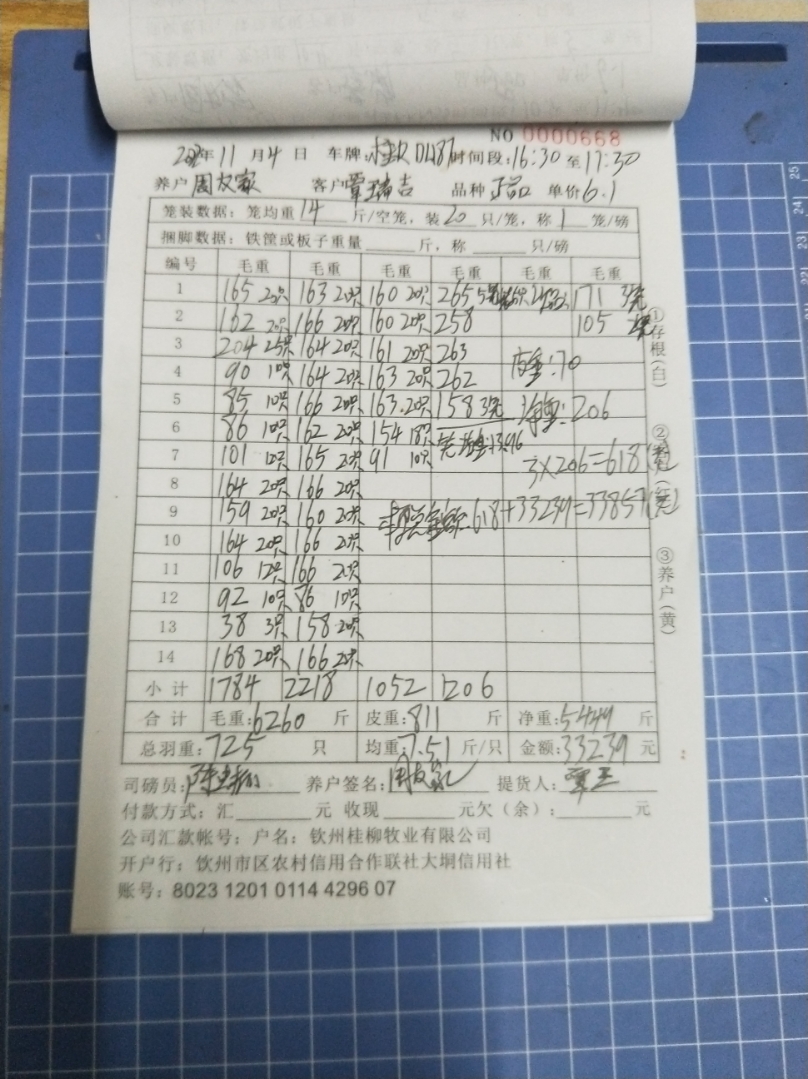 NO 0000668
年 11 月 4 日 车牌: 时间段: 16:30 至 17:30
养户 周友家 客户 覃瑞吉 品种 单价 6.1
笼装数据: 笼均重 14 斤/空笼, 装 20 只/笼, 称 1 笼/磅
捆脚数据: 铁筐或板子重量 斤, 称 只/磅
编号 毛重 毛重 毛重 毛重 毛重 毛重
1 165 20只 163 20只 160 20只 265 171
2 162 20只 166 20只 160 20只 258 105
3 204 25只 164 20只 161 20只 263
4 90 10只 164 20只 163 20只 262 皮重:70
5 85 10只 166 20只 163 20只 158 净重:206
6 86 10只 162 20只 154 18只
7 101 12只 165 20只 91 10只 3×206=618
8 164 20只 166 20只
9 159 20只 160 20只 618+33239=33857
10 164 20只 166 20只
11 106 12只 166 20只
12 92 10只 86 10只
13 38 3只 158 20只
14 168 20只 166 20只
小计 1784 2218 1052 1206
合计 毛重:6260 斤 皮重:811 斤 净重:5449 斤
总羽重:725 只 均重:7.51 斤/只 金额:33239 元
司磅员: 养户签名:周友家 提货人:
付款方式: 汇 元 收现 元欠(余): 元
公司汇款帐号: 户名: 钦州桂柳牧业有限公司
开户行: 钦州市区农村信用合作联社大垌信用社
账号: 8023 1201 0114 4296 07
①存根(白)
②
③养户(黄)